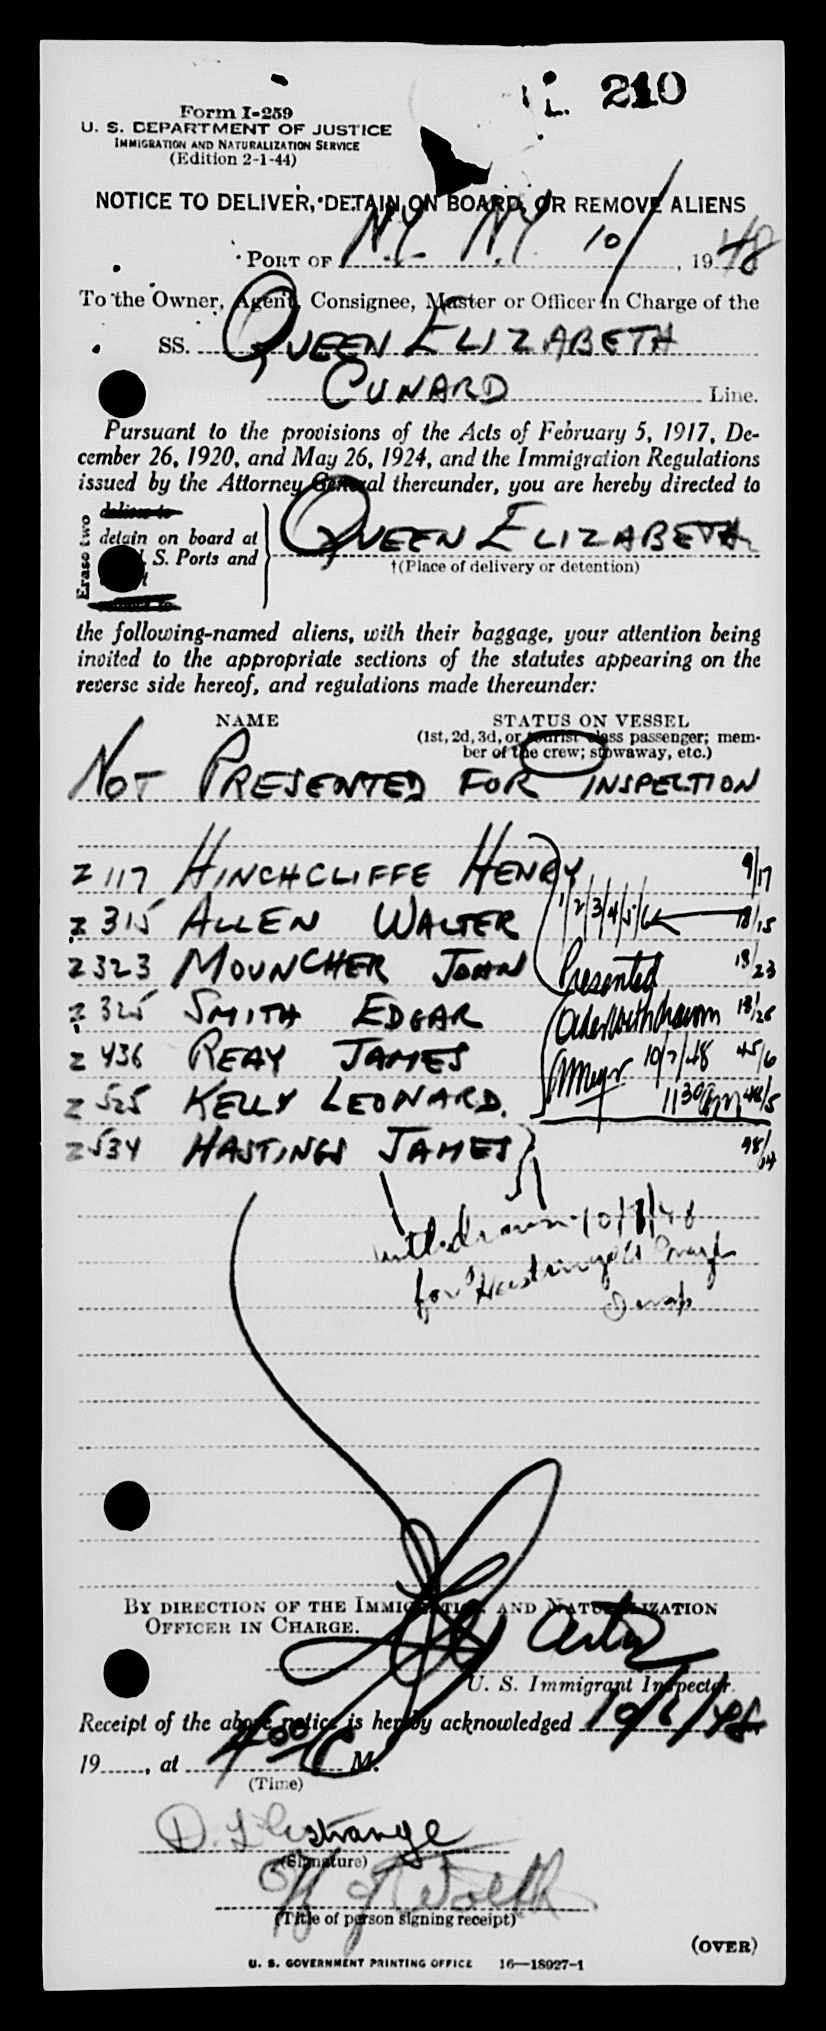 210
Form I-259
U. S. DEPARTMENT OF JUSTICE
IMMIGRATION AND NATURALIZATION SERVICE
(Edition 2-1-44)
NOTICE TO DELIVER, DETAIN ON BOARD, OR REMOVE ALIENS
PORT OF N.Y. N.Y. 10/ , 1948
To the Owner, Agent, Consignee, Master or Officer in Charge of the
SS. QUEEN ELIZABETH
CUNARD Line.
Pursuant to the provisions of the Acts of February 5, 1917, De-
cember 26, 1920, and May 26, 1924, and the Immigration Regulations
issued by the Attorney General thereunder, you are hereby directed to
Erase two
deliver to
detain on board at
S. Ports and
QUEEN ELIZABETH
†(Place of delivery or detention)
the following-named aliens, with their baggage, your attention being
invited to the appropriate sections of the statutes appearing on the
reverse side hereof, and regulations made thereunder:
NAME STATUS ON VESSEL
(1st, 2d, 3d, or tourist class passenger; mem-
ber of the crew; stowaway, etc.)
NOT PRESENTED FOR INSPECTION
Z 117 HINCHCLIFFE HENRY 9/17
Z 315 ALLEN WALTER 1/2/3/4/5/6 18/15
Z 323 MOUNCHER JOHN Presented 18/23
Z 325 SMITH EDGAR Order withdrawn 18/25
Z 436 REAY JAMES 10/7/48 45/6
Z 525 KELLY LEONARD. 11 30 AM 48/5
Z 534 HASTINGS JAMES
withdrawn 10/8/48
for Hastings
BY DIRECTION OF THE IMMIGRATION AND NATURALIZATION
OFFICER IN CHARGE.
U. S. Immigrant Inspector.
Receipt of the above notice is hereby acknowledged 10/6/48
19......, at 400 P M.
(Time)
D. L'Estrange
(Signature)
(Title of person signing receipt)
(OVER)
U. S. GOVERNMENT PRINTING OFFICE 16—18027-1